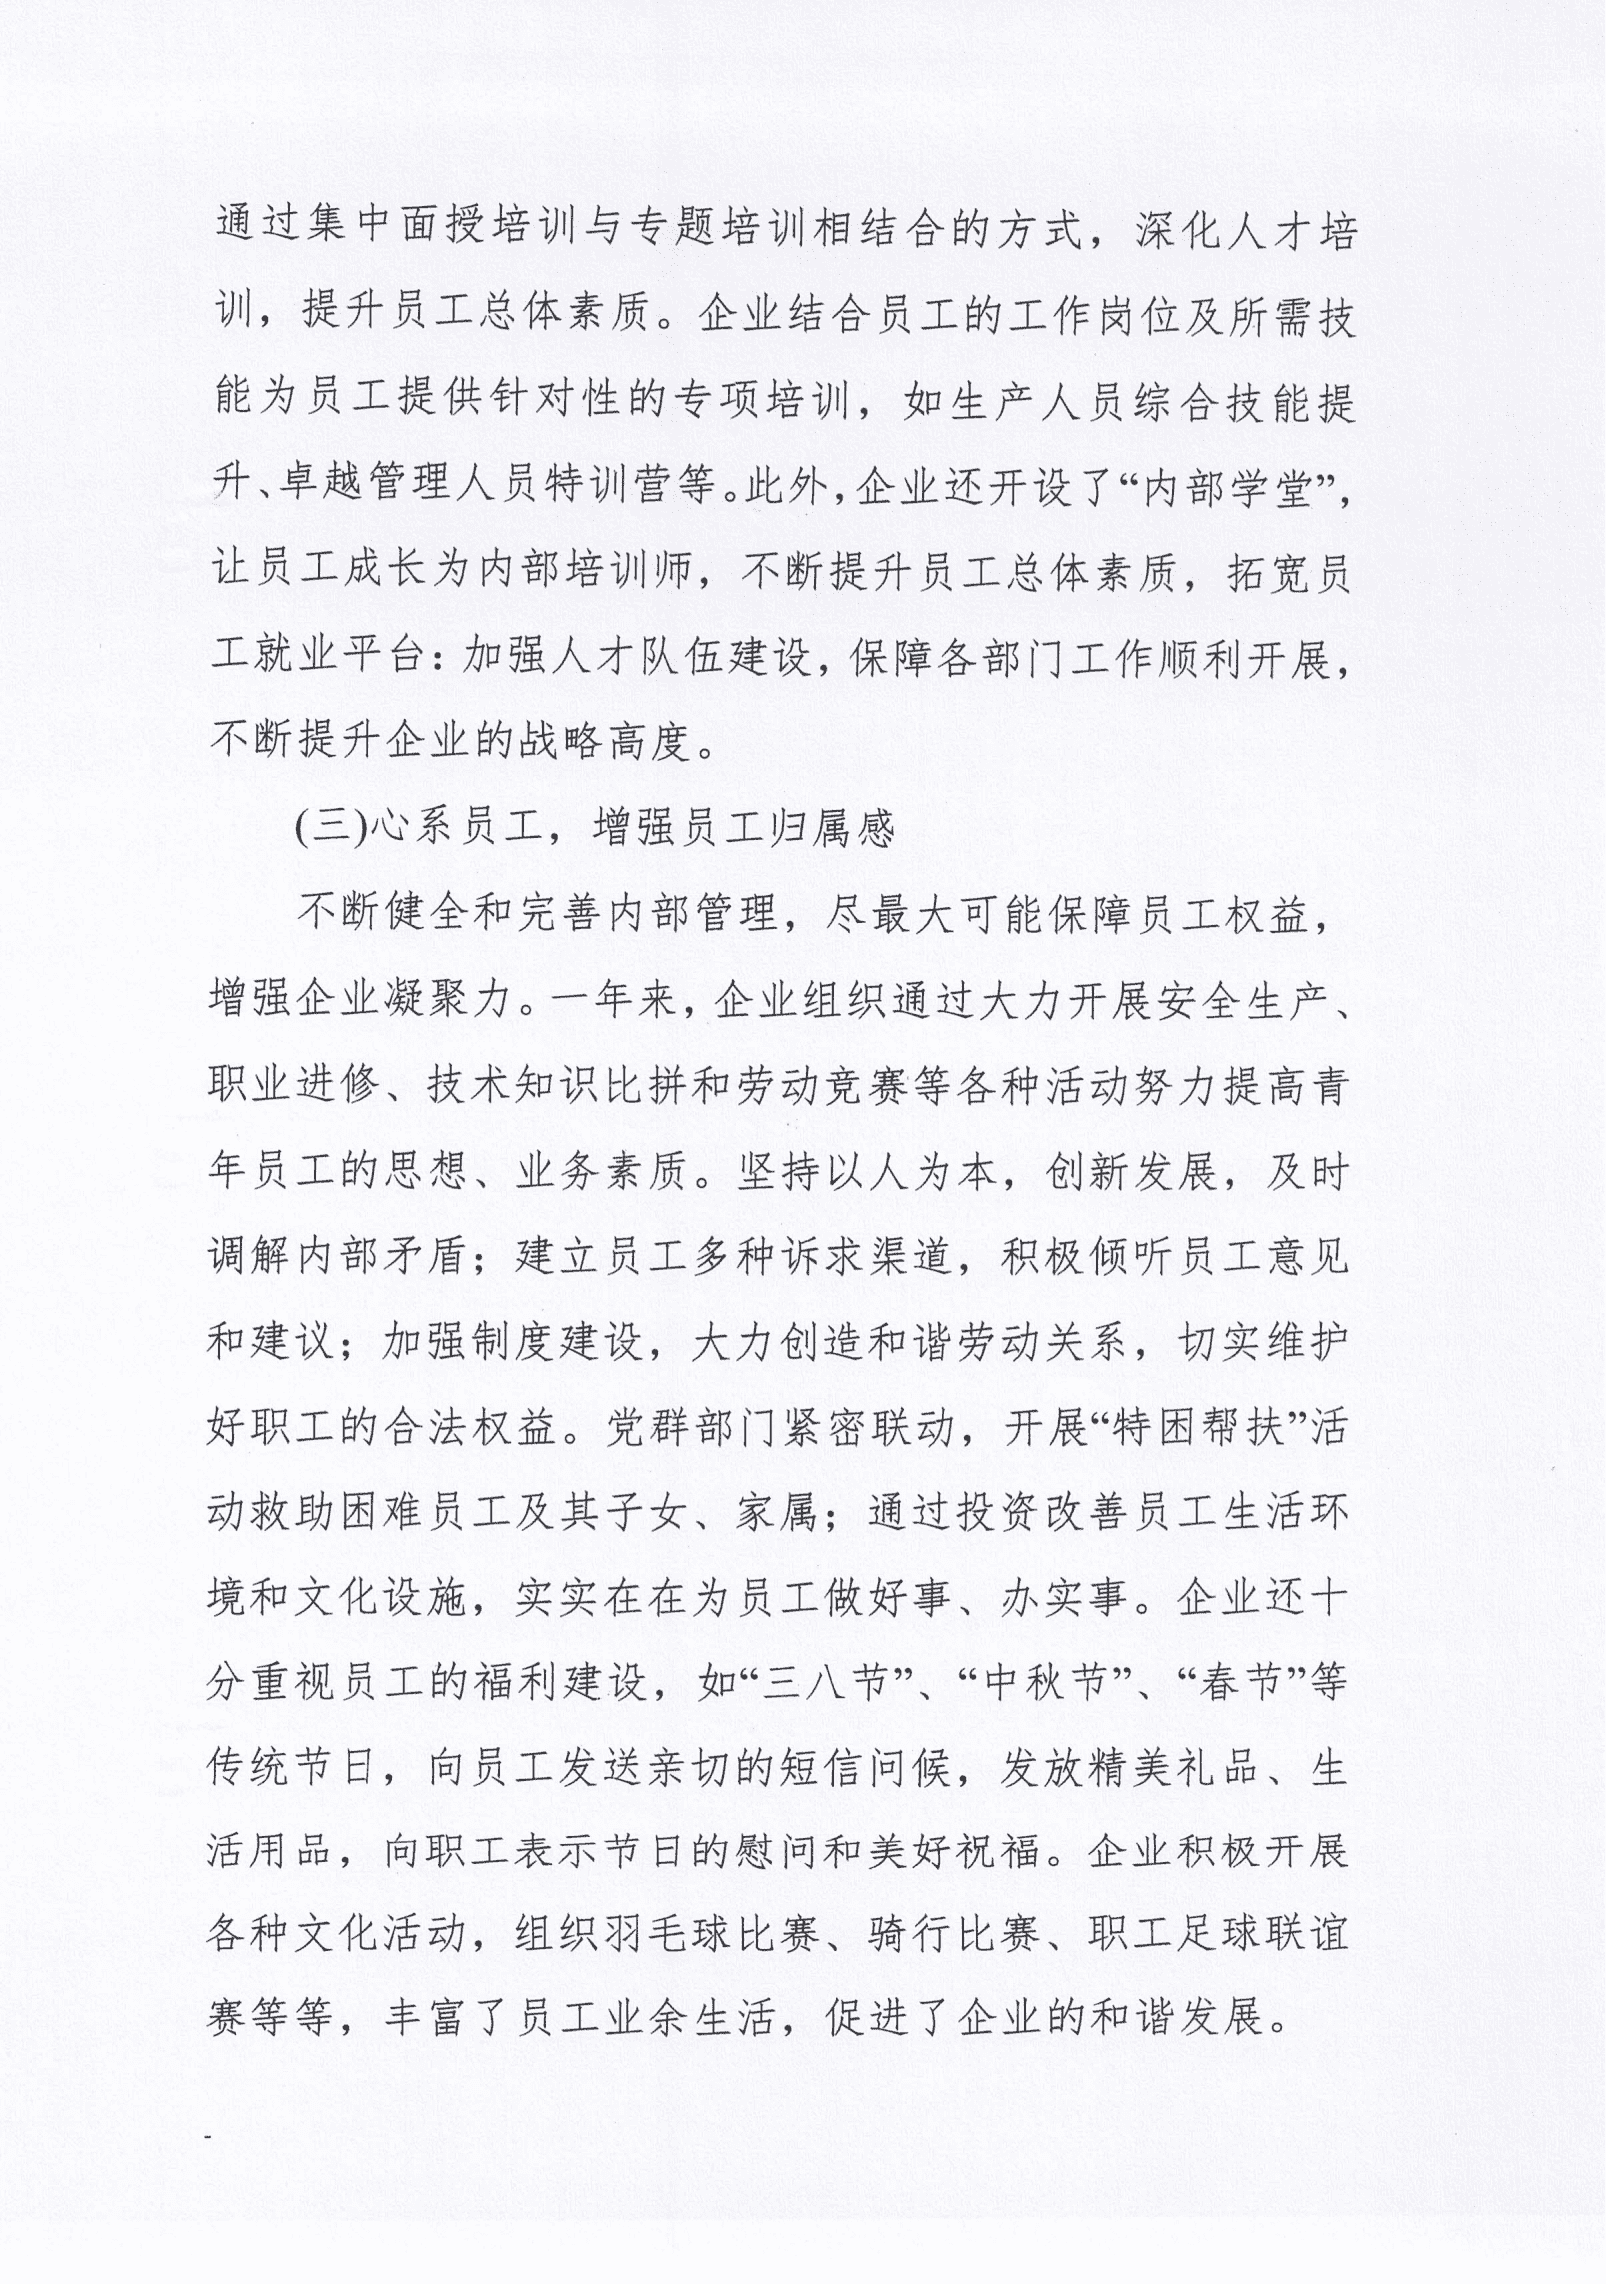 通过集中面授培训与专题培训相结合的方式，深化人才培
训，提升员工总体素质。企业结合员工的工作岗位及所需技
能为员工提供针对性的专项培训，如生产人员综合技能提
升、卓越管理人员特训营等。此外，企业还开设了“内部学堂”，
让员工成长为内部培训师，不断提升员工总体素质，拓宽员
工就业平台：加强人才队伍建设，保障各部门工作顺利开展，
不断提升企业的战略高度。
(三)心系员工，增强员工归属感
不断健全和完善内部管理，尽最大可能保障员工权益，
增强企业凝聚力。一年来，企业组织通过大力开展安全生产、
职业进修、技术知识比拼和劳动竞赛等各种活动努力提高青
年员工的思想、业务素质。坚持以人为本，创新发展，及时
调解内部矛盾；建立员工多种诉求渠道，积极倾听员工意见
和建议；加强制度建设，大力创造和谐劳动关系，切实维护
好职工的合法权益。党群部门紧密联动，开展“特困帮扶”活
动救助困难员工及其子女、家属；通过投资改善员工生活环
境和文化设施，实实在在为员工做好事、办实事。企业还十
分重视员工的福利建设，如“三八节”、“中秋节”、“春节”等
传统节日，向员工发送亲切的短信问候，发放精美礼品、生
活用品，向职工表示节日的慰问和美好祝福。企业积极开展
各种文化活动，组织羽毛球比赛、骑行比赛、职工足球联谊
赛等等，丰富了员工业余生活，促进了企业的和谐发展。